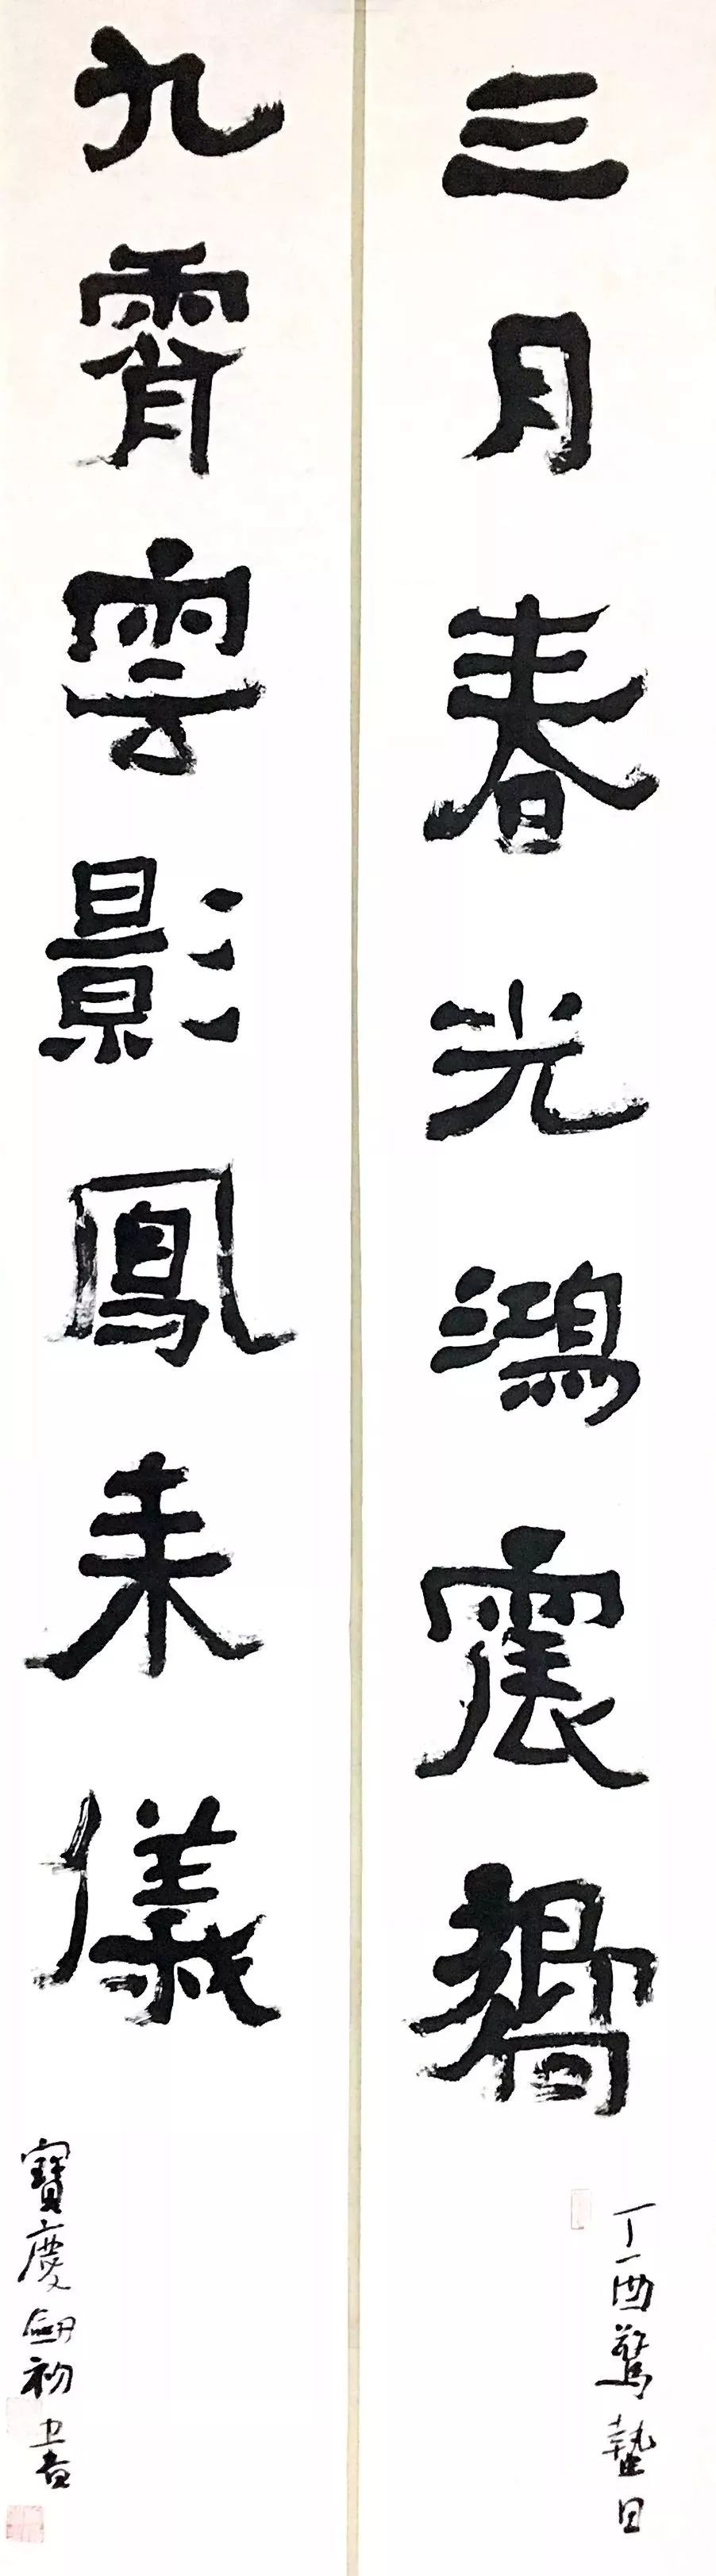 三月春光鴻震嚮
丁酉驚蟄日
九霄雲影鳳來儀
寶慶劍初書